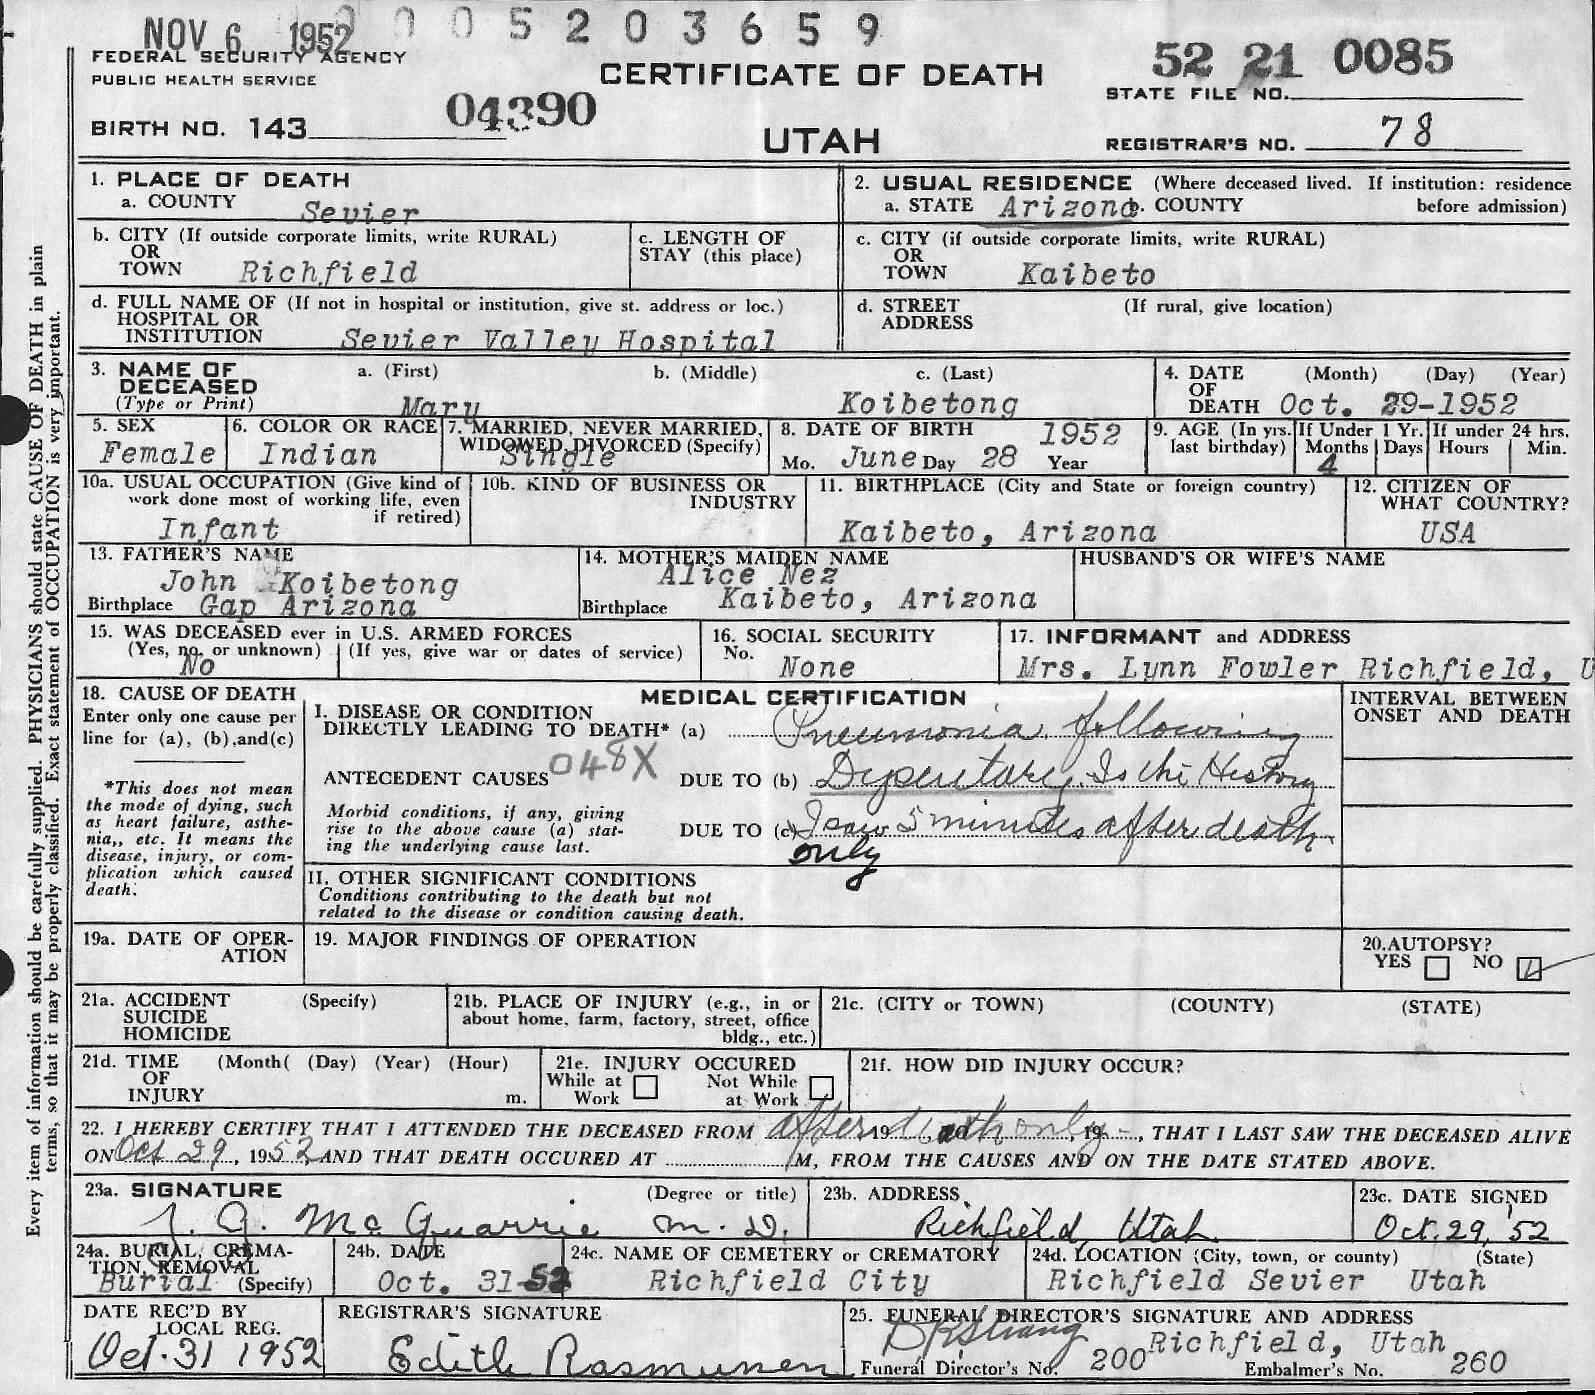 NOV 6 1952 0 0 5 2 0 3 6 5 9
FEDERAL SECURITY AGENCY
PUBLIC HEALTH SERVICE
CERTIFICATE OF DEATH
UTAH
52 21 0085
STATE FILE NO.
BIRTH NO. 143 04390
REGISTRAR'S NO. 78
Every item of information should be carefully supplied. PHYSICIANS should state CAUSE OF DEATH in plain
terms, so that it may be properly classified. Exact statement of OCCUPATION is very important.
1. PLACE OF DEATH
a. COUNTY Sevier
2. USUAL RESIDENCE (Where deceased lived. If institution: residence
a. STATE Arizona b. COUNTY before admission)
b. CITY (If outside corporate limits, write RURAL)
OR
TOWN Richfield
c. LENGTH OF
STAY (this place)
c. CITY (if outside corporate limits, write RURAL)
OR
TOWN Kaibeto
d. FULL NAME OF (If not in hospital or institution, give st. address or loc.)
HOSPITAL OR
INSTITUTION Sevier Valley Hospital
d. STREET (If rural, give location)
ADDRESS
3. NAME OF a. (First) b. (Middle) c. (Last)
DECEASED
(Type or Print) Mary Koibetong
4. DATE (Month) (Day) (Year)
OF
DEATH Oct. 29-1952
5. SEX
Female
6. COLOR OR RACE
Indian
7. MARRIED, NEVER MARRIED,
WIDOWED, DIVORCED (Specify)
Single
8. DATE OF BIRTH 1952
Mo. June Day 28 Year
9. AGE (In yrs.
last birthday)
If Under 1 Yr.
Months Days
4
If under 24 hrs.
Hours Min.
10a. USUAL OCCUPATION (Give kind of
work done most of working life, even
if retired)
Infant
10b. KIND OF BUSINESS OR
INDUSTRY
11. BIRTHPLACE (City and State or foreign country)
Kaibeto, Arizona
12. CITIZEN OF
WHAT COUNTRY?
USA
13. FATHER'S NAME
John Koibetong
Birthplace Gap Arizona
14. MOTHER'S MAIDEN NAME
Alice Nez
Birthplace Kaibeto, Arizona
HUSBAND'S OR WIFE'S NAME
15. WAS DECEASED ever in U.S. ARMED FORCES
(Yes, no, or unknown) (If yes, give war or dates of service)
No
16. SOCIAL SECURITY
No. None
17. INFORMANT and ADDRESS
Mrs. Lynn Fowler Richfield, U
18. CAUSE OF DEATH
Enter only one cause per
line for (a), (b), and (c)
*This does not mean
the mode of dying, such
as heart failure, asthe-
nia,, etc. It means the
disease, injury, or com-
plication which caused
death.
MEDICAL CERTIFICATION
I. DISEASE OR CONDITION
DIRECTLY LEADING TO DEATH* (a) Pneumonia following
ANTECEDENT CAUSES 048X DUE TO (b) Dysentary. Is the History
Morbid conditions, if any, giving
rise to the above cause (a) stat-
ing the underlying cause last.
DUE TO (c) I saw 5 minutes after death
only
INTERVAL BETWEEN
ONSET AND DEATH
II. OTHER SIGNIFICANT CONDITIONS
Conditions contributing to the death but not
related to the disease or condition causing death.
19a. DATE OF OPER-
ATION
19. MAJOR FINDINGS OF OPERATION
20. AUTOPSY?
YES NO
21a. ACCIDENT (Specify)
SUICIDE
HOMICIDE
21b. PLACE OF INJURY (e.g., in or
about home, farm, factory, street, office
bldg., etc.)
21c. (CITY or TOWN) (COUNTY) (STATE)
21d. TIME (Month( (Day) (Year) (Hour)
OF
INJURY m.
21e. INJURY OCCURED
While at Not While
Work at Work
21f. HOW DID INJURY OCCUR?
22. I HEREBY CERTIFY THAT I ATTENDED THE DECEASED FROM after death only, 19, THAT I LAST SAW THE DECEASED ALIVE
ON Oct 29, 1952, AND THAT DEATH OCCURED AT M, FROM THE CAUSES AND ON THE DATE STATED ABOVE.
23a. SIGNATURE (Degree or title)
J. G. McQuarrie M.D.
23b. ADDRESS
Richfield, Utah
23c. DATE SIGNED
Oct. 29, '52
24a. BURIAL, CREMA-
TION, REMOVAL
Burial (Specify)
24b. DATE
Oct. 31-52
24c. NAME OF CEMETERY or CREMATORY
Richfield City
24d. LOCATION (City, town, or county) (State)
Richfield Sevier Utah
DATE REC'D BY
LOCAL REG.
Oct. 31 1952
REGISTRAR'S SIGNATURE
Edith Rasmussen
25. FUNERAL DIRECTOR'S SIGNATURE AND ADDRESS
Richfield, Utah
Funeral Director's No. 200 Embalmer's No. 260